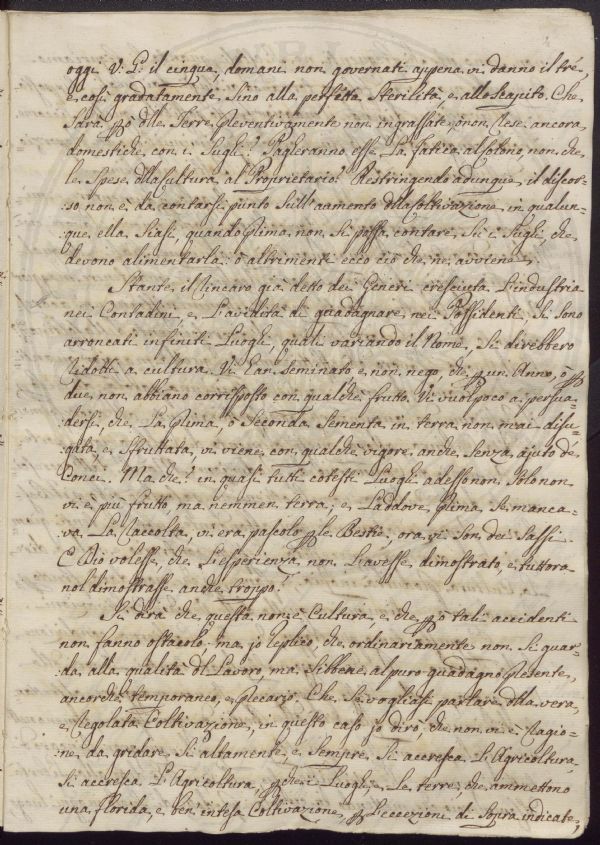 oggi V: G: il cinque, domani non governati appena vi danno il tré,
e così gradatamente sino alla perfetta sterilità, e allo scapito. Che
sarà pò delle Terre preventivamente non ingrassite, ò non rese ancora
domestiche con i Sughi? Pagheranno esse La fatica al Colono, non che
le Spese della Cultura al Proprietario? Restringendo adunque il discor-
so non è da contarsi punto sull'aumento della Coltivazione in qualun-
que ella siasi, quando prima non si possa contare su i Sughi, che
devono alimentarla: ò altrimenti ecco ciò che ne avviene.
Stante il rincaro già detto dei Generi cresciuta L'industria
nei Contadini, e L'avidità di guadagnare nei Possidenti, si sono
arroncati infiniti Luoghi, quali variando il Nome, si direbbero
ridotti a cultura. Vi han seminato e non nego, che p un Anno, ò p
due non abbiano corrisposto con qualche frutto. Vi vuol poco a persua-
dersi, che La prima, ò Seconda Sementa in terra non mai disu-
gata, e sfruttata, vi viene con qualche vigore anche senza ajuto dé
Conci. Ma che? in quasi tutti cotesti Luoghi adesso non solo non
vi è più frutto, ma nemmen terra; e Laddove prima se manca-
va La Raccolta, vi era pascolo p le Bestie, ora vi son dei Sassi.
E Dio volesse, che L'esperienza non L'avesse dimostrato, e tuttora
nol dimostrasse anche troppo!
Si dirà che questa non è Cultura, e che pò tali accidenti
non fanno ostacolo: ma jo replico, che ordinariamente non si guar-
da alla qualità del Lavoro, ma sibbene al puro guadagno presente,
ancorche temporaneo, e precario. Che se vogliasi parlare della vera,
e regolata Coltivazione, in questo caso jo dirò che non vi è ragio-
ne da gridare sì altamente, e sempre Si accresca L'Agricoltura,
si accresca L'Agricoltura, pche i Luoghi, e Le terre, che ammettono
una florida, e ben intesa Coltivazione, p L'eccezioni di sopra indicate,